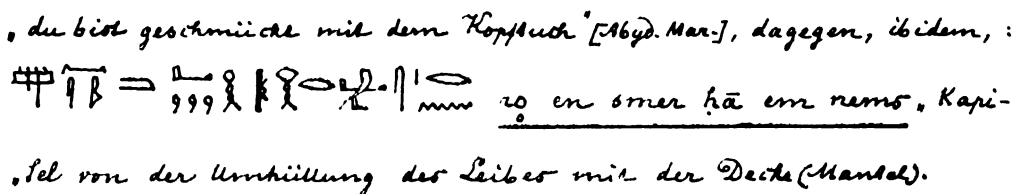 „du bist geschmückt mit dem Kopftuch“ [Abyd. Mar.], dagegen, ibidem, :
ro̥ en smer ḥā em nems „Kapi-
„tel von der Umhüllung des Leibes mit der Decke (Mantel).